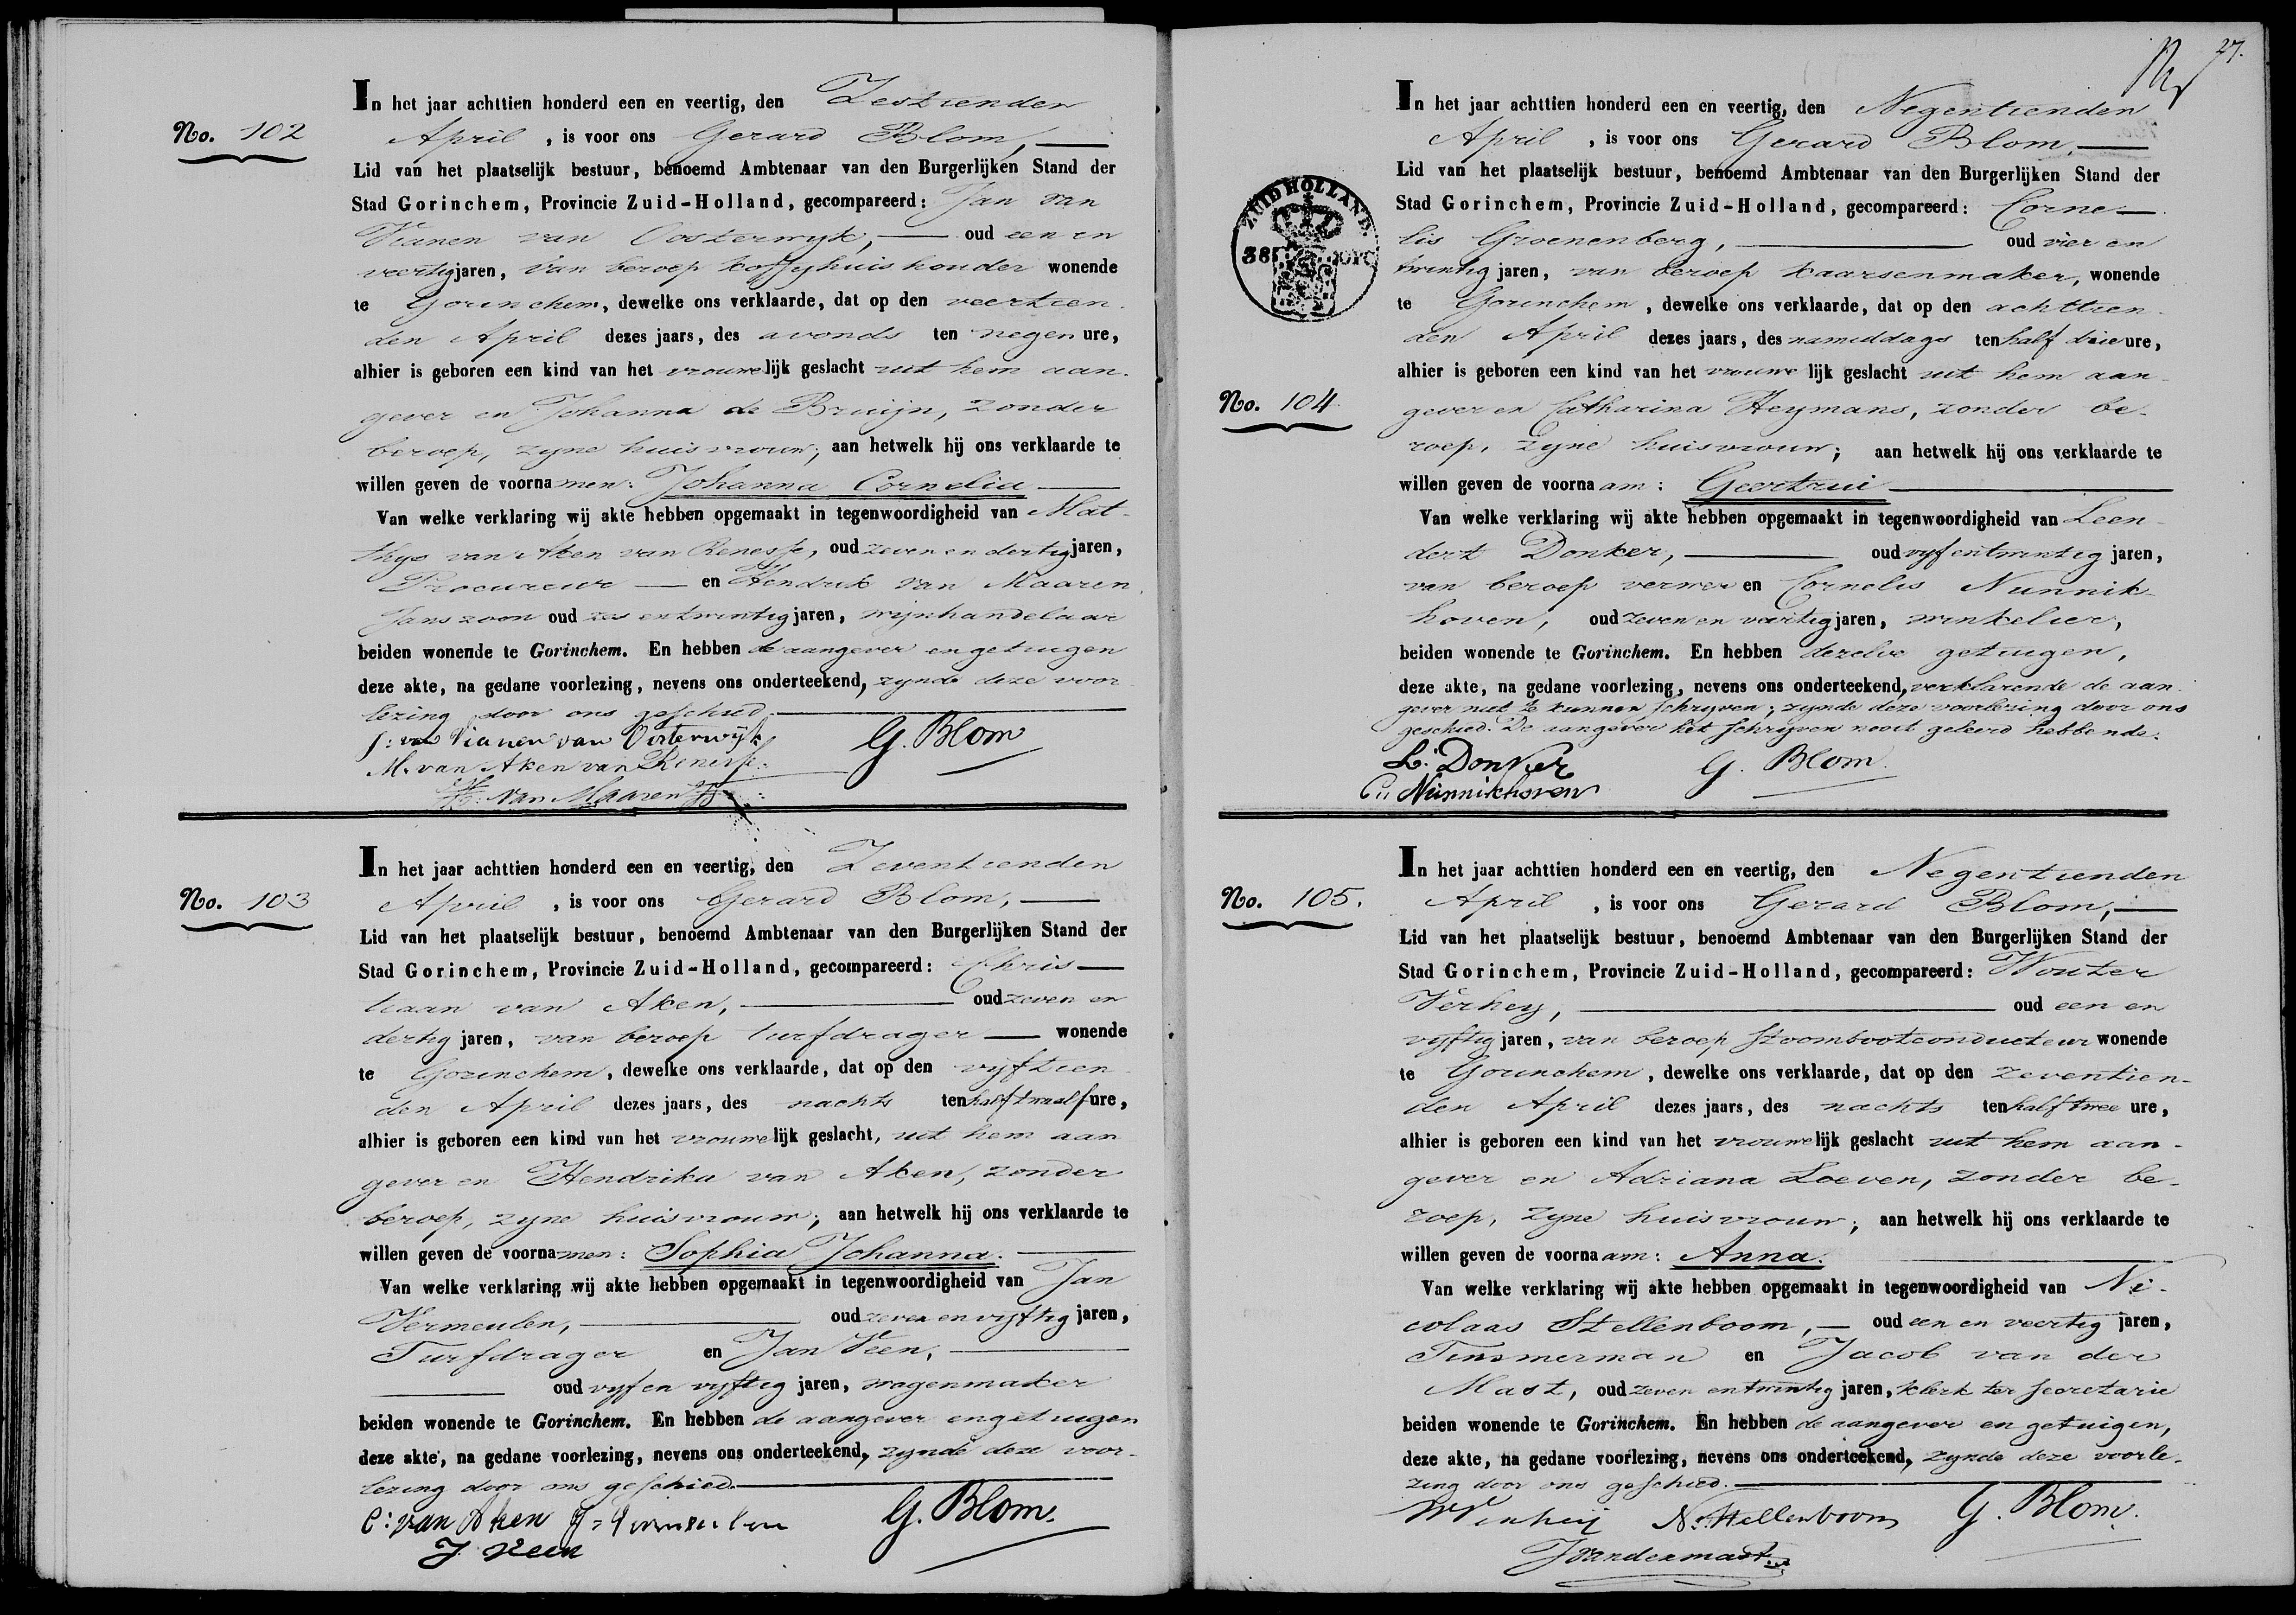 No. 102
In het jaar achttien honderd een en veertig, den Zestienden
April , is voor ons Gerard Blom,
Lid van het plaatselijk bestuur, benoemd Ambtenaar van den Burgerlijken Stand der
Stad Gorinchem, Provincie Zuid-Holland, gecompareerd: Jan van
Vianen van Oosterwyk, oud een en
veertig jaren, van beroep koffyhuishouder wonende
te Gorinchem, dewelke ons verklaarde, dat op den veertien
den April dezes jaars, des avonds ten negen ure,
alhier is geboren een kind van het vrouwelijk geslacht uit hem aan-
gever en Johanna de Bruijn, zonder
beroep, zyne huisvrouw; aan hetwelk hij ons verklaarde te
willen geven de voornamen: Johanna Cornelia
Van welke verklaring wij akte hebben opgemaakt in tegenwoordigheid van Mat-
thys van Aken van Renesse, oud zeven en dertig jaren,
Procureur en Hendrik van Maaren
Janszoon oud zes en twintig jaren, wijnhandelaar
beiden wonende te Gorinchem. En hebben de aangever en getuigen
deze akte, na gedane voorlezing, nevens ons onderteekend, zynde deze voor
lezing door ons geschied.
J: van Vianen van Oosterwijk G. Blom
M. van Aken van Renesse.
H. van Maaren Jz
No. 103
In het jaar achttien honderd een en veertig, den Zeventienden
April , is voor ons Gerard Blom,
Lid van het plaatselijk bestuur, benoemd Ambtenaar van den Burgerlijken Stand der
Stad Gorinchem, Provincie Zuid-Holland, gecompareerd: Chris
tiaan van Aken, oud zeven en
dertig jaren, van beroep turfdrager wonende
te Gorinchem, dewelke ons verklaarde, dat op den vijftien
den April dezes jaars, des nachts ten half twaalf ure,
alhier is geboren een kind van het vrouwelijk geslacht, uit hem aan
gever en Hendrika van Aken, zonder
beroep, zyne huisvrouw; aan hetwelk hij ons verklaarde te
willen geven de voornamen: Sophia Johanna.
Van welke verklaring wij akte hebben opgemaakt in tegenwoordigheid van Jan
Vermeulen, oud zeven en vijftig jaren,
Turfdrager en Jan Veen,
oud vyf en vyftig jaren, wagenmaker
beiden wonende te Gorinchem. En hebben de aangever en getuigen
deze akte, na gedane voorlezing, nevens ons onderteekend, zynde deze voor-
lezing door ons geschied.
C: van Aken J: Vermeulen G. Blom.
J Veen
27.
ZUID HOLLAND.
38
No. 104
In het jaar achttien honderd een en veertig, den Negentienden
April , is voor ons Gerard Blom,
Lid van het plaatselijk bestuur, benoemd Ambtenaar van den Burgerlijken Stand der
Stad Gorinchem, Provincie Zuid-Holland, gecompareerd: Corne
lis Groenenberg, oud vier en
twintig jaren, van beroep kaarsenmaker, wonende
te Gorinchem, dewelke ons verklaarde, dat op den achttien
den April dezes jaars, des namiddags ten half drie ure,
alhier is geboren een kind van het vrouwelijk geslacht uit hem aan-
gever en Catharina Heymans, zonder be-
roep, zyne huisvrouw; aan hetwelk hij ons verklaarde te
willen geven de voornaam: Geertrui
Van welke verklaring wij akte hebben opgemaakt in tegenwoordigheid van Leen
dert Donker, oud vyf en twintig jaren,
van beroep verwer en Cornelis Nunnik-
hoven, oud zeven en veertig jaren, winkelier,
beiden wonende te Gorinchem. En hebben dezelve getuigen,
deze akte, na gedane voorlezing, nevens ons onderteekend, verklarende de aan
gever niet te kunnen schryven; zynde deze voorlezing door ons
geschied. De aangever het schryven nooit geleerd hebbende.
L. Donker G. Blom.
C. Nunnikhoven
No. 105.
In het jaar achttien honderd een en veertig, den Negentienden
April , is voor ons Gerard Blom,
Lid van het plaatselijk bestuur, benoemd Ambtenaar van den Burgerlijken Stand der
Stad Gorinchem, Provincie Zuid-Holland, gecompareerd: Wouter
Verhey, oud een en
vijftig jaren, van beroep Stoombootconducteur wonende
te Gorinchem, dewelke ons verklaarde, dat op den zeventien-
den April dezes jaars, des nachts ten half twee ure,
alhier is geboren een kind van het vrouwelijk geslacht uit hem aan-
gever en Adriana Loeven, zonder be-
roep, zyne huisvrouw; aan hetwelk hij ons verklaarde te
willen geven de voornaam: Anna.
Van welke verklaring wij akte hebben opgemaakt in tegenwoordigheid van Ni-
colaas Stellenboom, oud een en veertig jaren,
Timmerman en Jacob van der
Mast, oud zeven en twintig jaren, klerk ter secretarie
beiden wonende te Gorinchem. En hebben de aangever en getuigen,
deze akte, na gedane voorlezing, nevens ons onderteekend, zynde deze voorle-
zing door ons geschied.
W Verheij N. Stellenboom G. Blom.
J vandermast